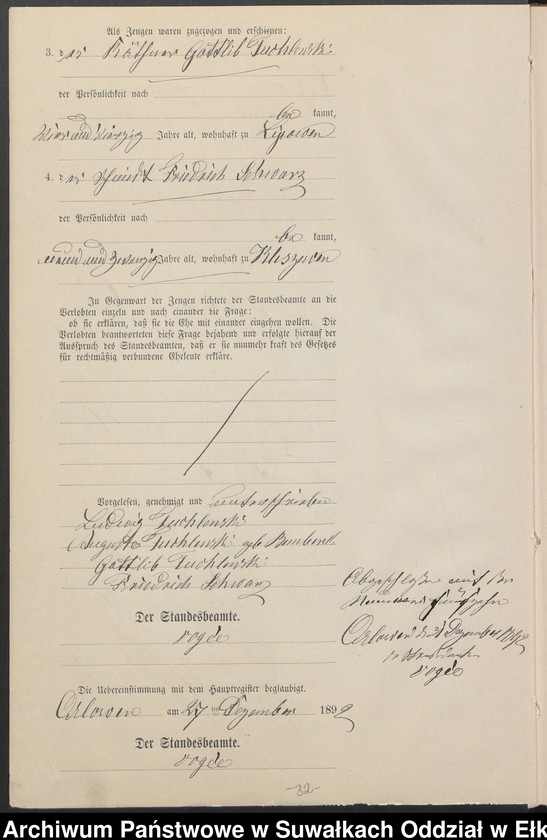 Als Zeugen waren zugezogen und erschienen:
3. der Käthner Gottlieb Tuchlenski
der Persönlichkeit nach
be kannt,
vier und vierzig Jahre alt, wohnhaft zu Lipowen
4. der Friedrich Schwarz
der Persönlichkeit nach
be kannt,
und zwanzig Jahre alt, wohnhaft zu
In Gegenwart der Zeugen richtete der Standesbeamte an die
Verlobten einzeln und nach einander die Frage:
ob sie erklären, daß sie die Ehe mit einander eingehen wollen. Die
Verlobten beantworteten diese Frage bejahend und erfolgte hierauf der
Ausspruch des Standesbeamten, daß er sie nunmehr kraft des Gesetzes
für rechtmäßig verbundene Eheleute erkläre.
Vorgelesen, genehmigt und unterschrieben
Ludwig Tuchlenski
Auguste Tuchlenski geb
Gottlib Tuchlenski
Friedrich Schwarz
Der Standesbeamte.
Vogée
Abgeschlossen mit der
Nummer fünfzehn
Orlowen d 31 Dezember
Der Standesbeamte
Vogée
Die Uebereinstimmung mit dem Hauptregister beglaubigt.
Orlowen am 27 ten Dezember 1892
Der Standesbeamte.
Vogée
32
Archiwum Państwowe w Suwałkach Oddział w Ełk